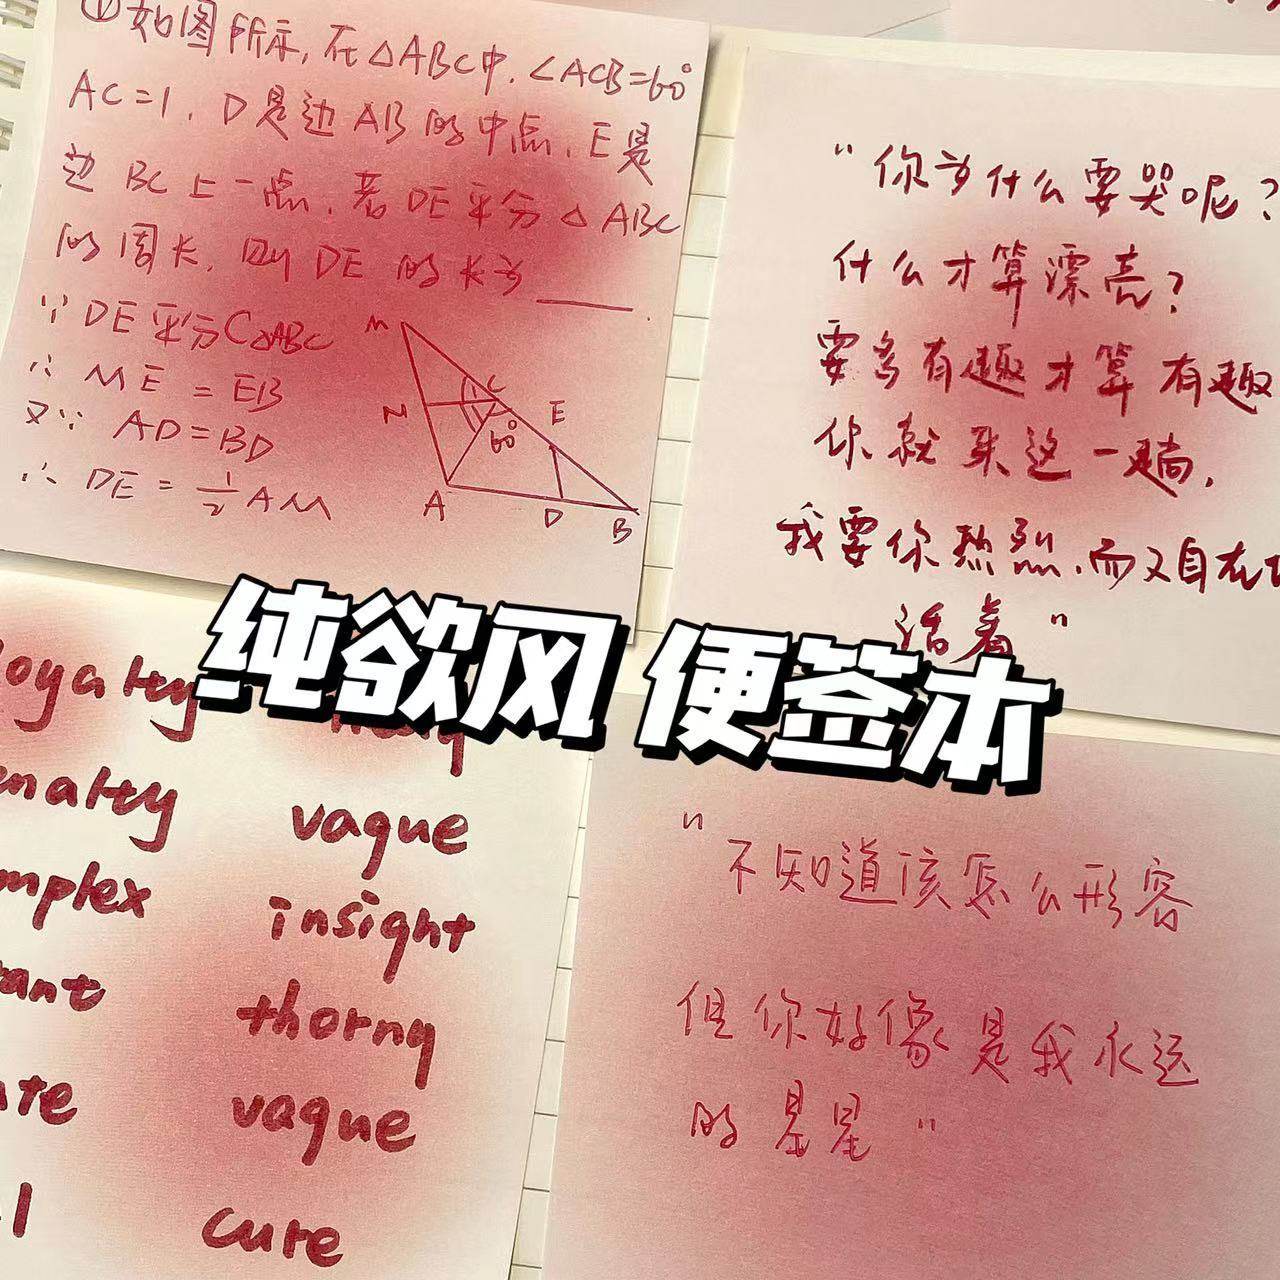 ①如图所示,在△ABC中,∠ACB=60°
AC=1,D是边AB的中点,E是
边BC上一点,若DE平分△ABC
的周长,则DE的长为____.
∵DE平分C△ABC
∴ ME = EB
又∵ AD=BD
∴ DE = 1/2 AM
M
C
N
60°
E
A
D
B
"你为什么要哭呢?
什么才算漂亮?
要多有趣才算有趣
你就来这一趟,
我要你热烈,而又自在地
活着"
纯欲风 便签本
vague
insight
thorny
vague
cure
"不知道该怎么形容
但你好像是我永远
的星星"